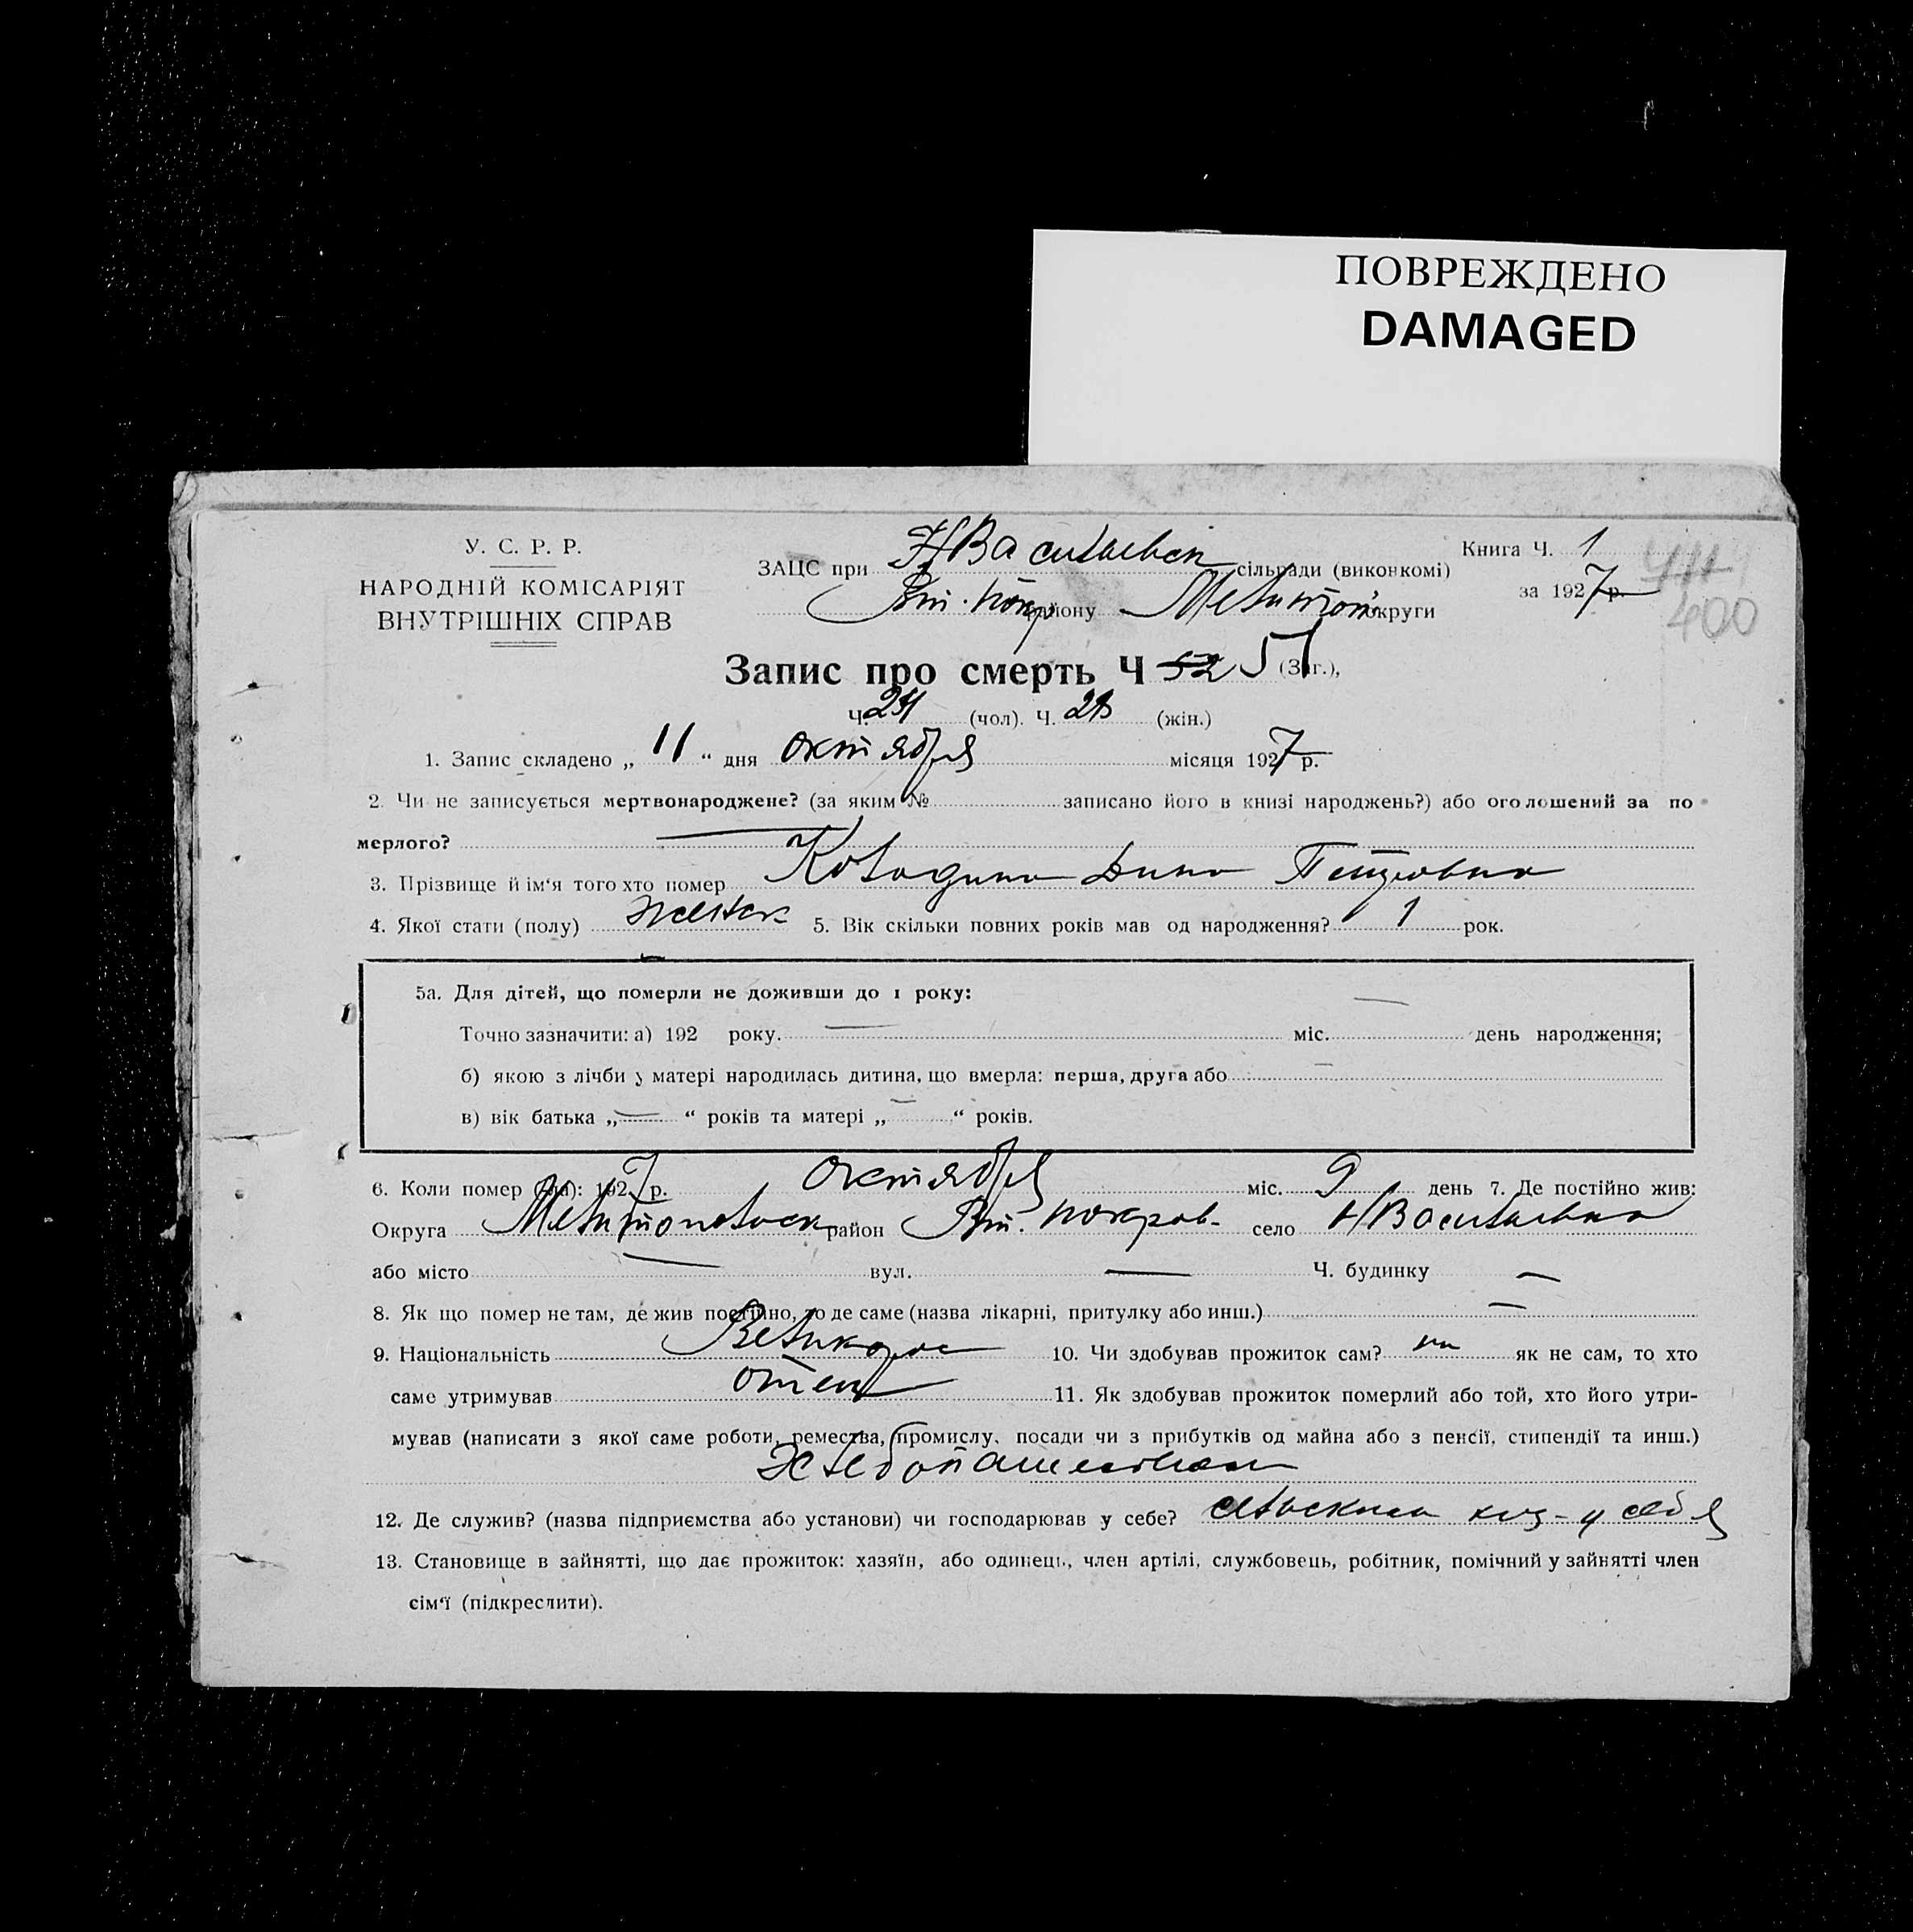 ПОВРЕЖДЕНО
DAMAGED
У. С. Р. Р.
НАРОДНІЙ КОМІСАРІЯТ
ВНУТРІШНІХ СПРАВ
ЗАЦС при НВасильевск сільради (виконкомі)
Вт. покр району Мелитоп округи
Книга Ч. 1
за 1927 р.
400
Запис про смерть Ч 52 51 (Заг.),
Ч. 24 (чол). Ч. 28 (жін.)
1. Запис складено „ 11 “ дня октября місяця 1927 р.
2. Чи не записується мертвонароджене? (за яким № записано його в книзі народжень?) або оголошений за по
мерлого? —
3. Прізвище й ім‘я того хто помер Колодина Дина Петровна
4. Якої стати (полу) женск 5. Вік скільки повних років мав од народження? 1 рок.
5а. Для дітей, що померли не доживши до 1 року: —
Точно зазначити: а) 192 року. — міс. день народження;
б) якою з лічби у матері народилась дитина, що вмерла: перша, друга або —
в) вік батька „ — “ років та матері „ — “ років.
6. Коли помер (ла): 1927 р. октября міс. 9 день 7. Де постійно жив:
Округа Мелитопольск район Вт. покров- село НВасильевка
або місто — вул. — Ч. будинку —
8. Як що помер не там, де жив постійно, то де саме (назва лікарні, притулку або инш.) —
9. Національність Великорос 10. Чи здобував прожиток сам? як не сам, то хто
саме утримував отец 11. Як здобував прожиток померлий або той, хто його утри-
мував (написати з якої саме роботи, ремества, промислу, посади чи з прибутків од майна або з пенсії, стипендії та инш.)
Хлебопашеством
12. Де служив? (назва підприємства або установи) чи господарював у себе? сельском хоз- у себя
13. Становище в зайнятті, що дає прожиток: хазяїн, або одинець, член артілі, службовець, робітник, помічний у зайнятті член
сім‘ї (підкреслити).